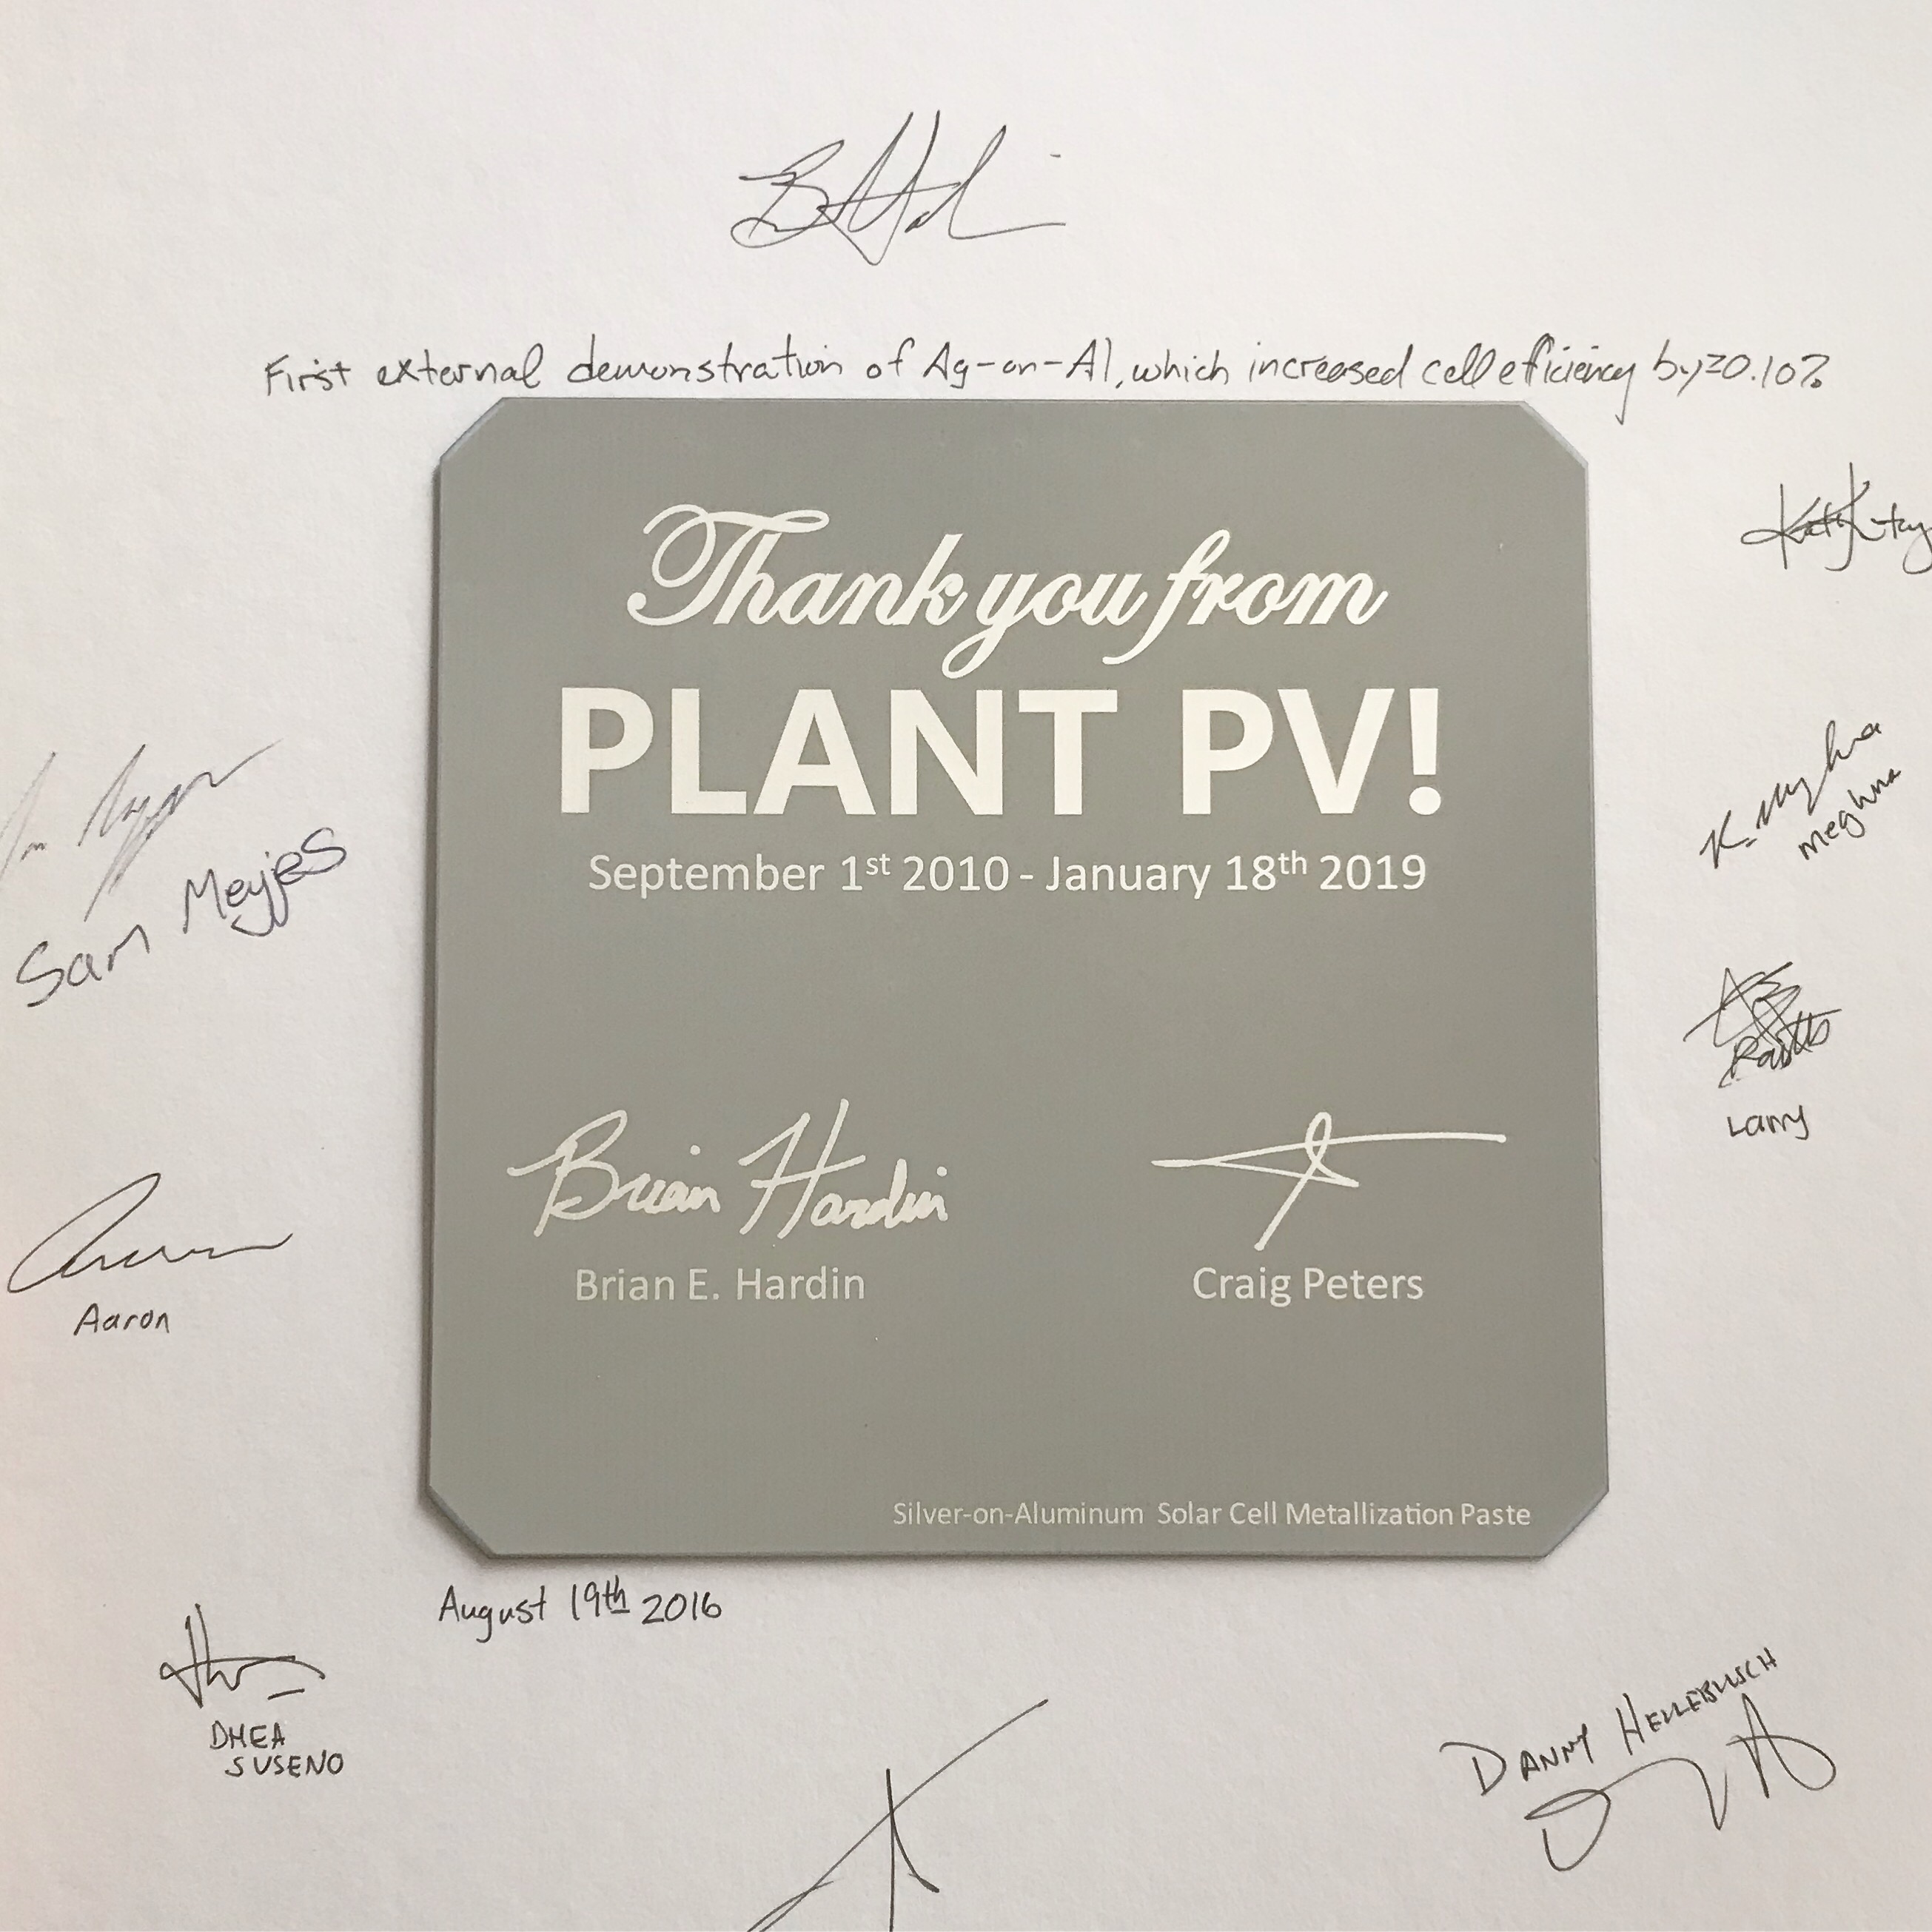 First external demonstration of Ag-on-Al, which increased cell efficiency by ≥0.10%
Thank you from
PLANT PV!
September 1st 2010 - January 18th 2019
Sam Meyjes
Meghna
Larry
Brian Hardin
Brian E. Hardin
Craig Peters
Aaron
Silver-on-Aluminum Solar Cell Metallization Paste
August 19th 2016
DHEA
SUSENO
DANNY HELLEBUSCH